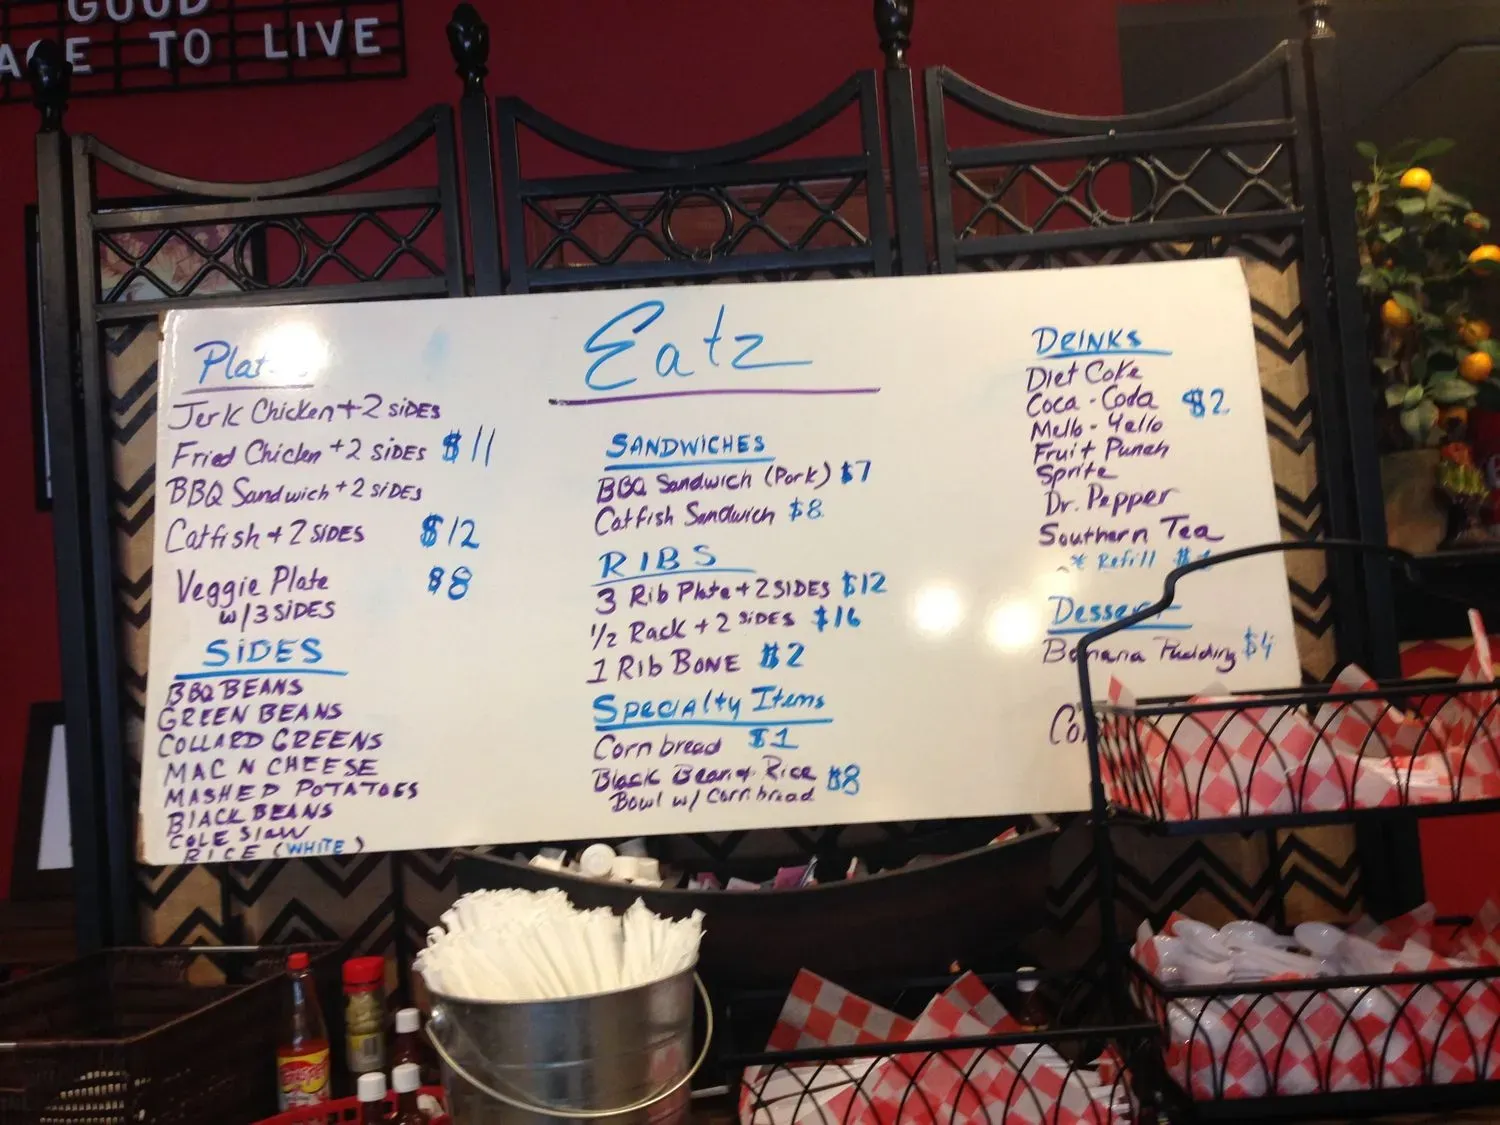 GOOD
TO LIVE
Eatz
Jerk Chicken + 2 SiDES
Fried Chicken + 2 SiDES $11
BBQ Sandwich + 2 SiDES
Catfish + 2 SIDES $12
Veggie Plate $8
w/3 SiDES
SiDES
BBQ BEANS
GREEN BEANS
COLLARD GREENS
MAC N CHEESE
MASHED POTATOES
BLACK BEANS
COLE SLAW
RICE (WHITE)
SANDWICHES
BBQ Sandwich (Pork) $7
Catfish Sandwich $8
RIBS
3 Rib Plate + 2 SIDES $12
1/2 Rack + 2 SiDES $16
1 Rib BONE $2
Specialty Items
Corn bread $1
Black Bean & Rice $8
Bowl w/ Cornbread
DRINKS
Diet Coke
Coca - Coda $2
Mello - Yello
Fruit Punch
Sprite
Dr. Pepper
Southern Tea
* Refill
Dessert
Banana Pudding $4